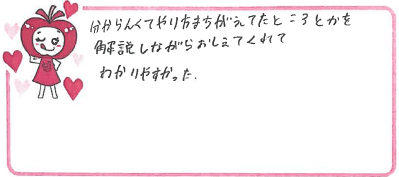 分からんくてやり方まちがえてたところとかを
解説しながらおしえてくれて
わかりやすかった.